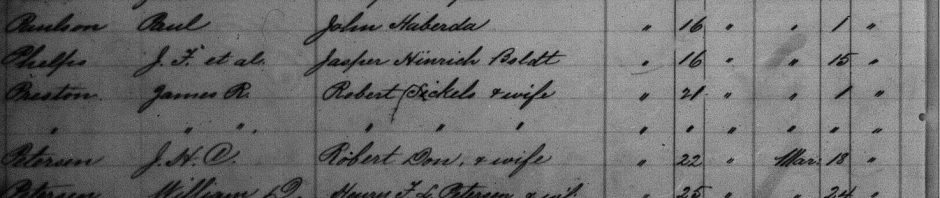 Paulson Paul John Haberda " 16 " " 1 "
Phelps J. F. et al. Jasper Hinrich Boldt " 16 " " 15 "
Preston James R. Robert Sickels & wife " 21 " " 1 "
" " " " " " " " " " " "
Petersen J. H. C. Robert Don, & wife " 22 " Mar. 18 "
Petersen William D. Henry F. L. Petersen & wife " 25 " " 24 "